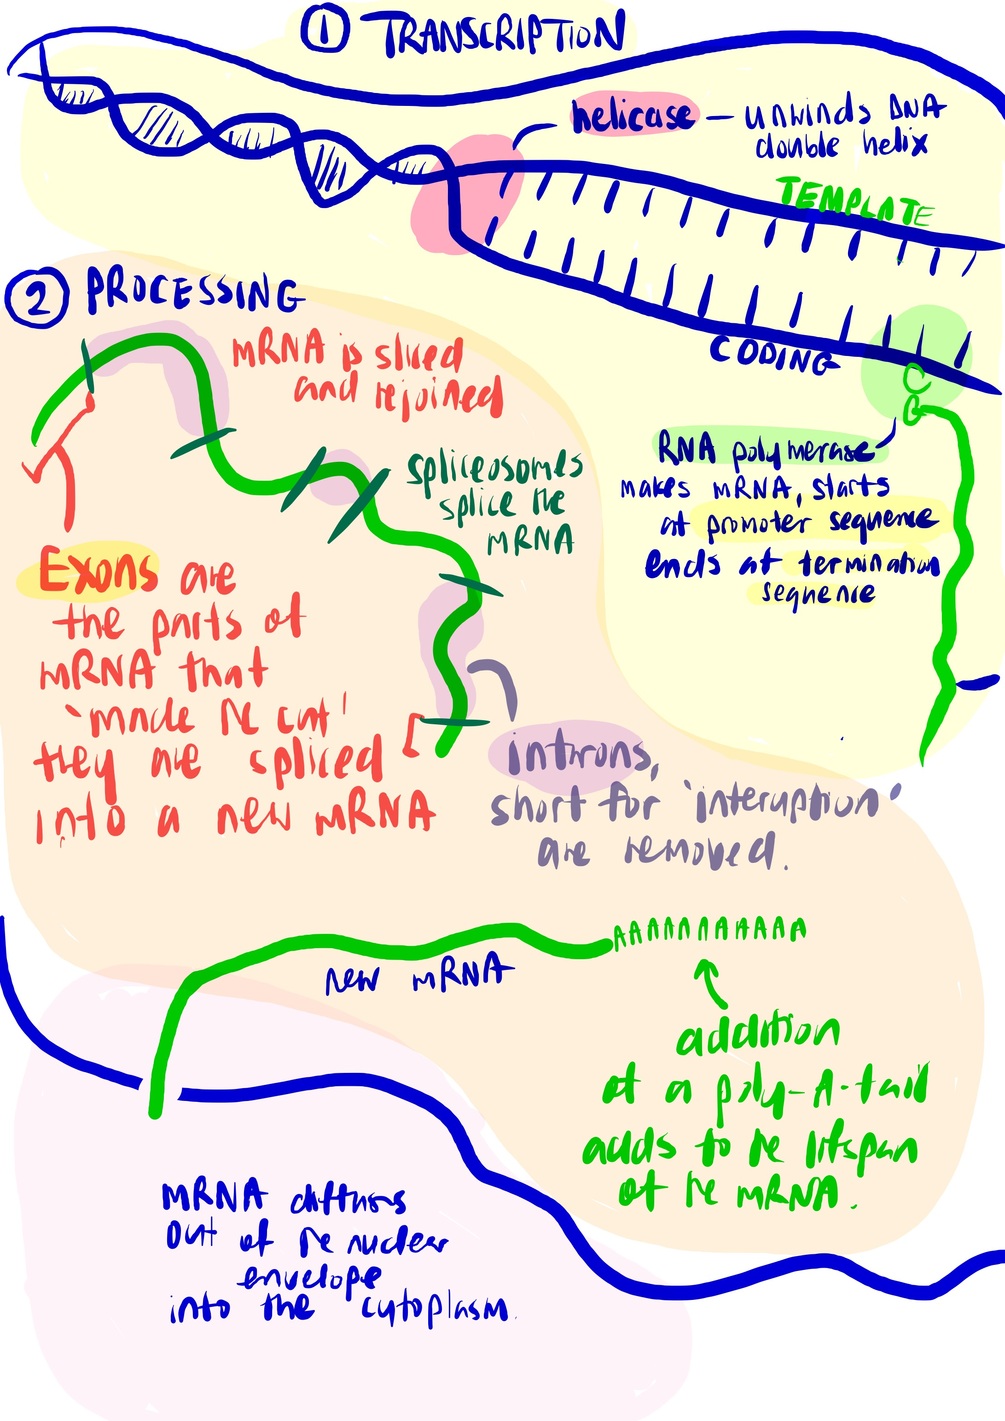 ① TRANSCRIPTION
helicase – unwinds DNA
double helix
TEMPLATE
CODING
RNA polymerase
makes mRNA, starts
at promoter sequence
ends at termination
sequence
② PROCESSING
mRNA is sliced
and rejoined
spliceosomes
splice the
mRNA
Exons are
the parts of
mRNA that
'made the cut'
they are spliced
into a new mRNA
introns,
short for 'interuption'
are removed.
new mRNA
AAAAAAAAAAA
addition
of a poly-A-tail
adds to the lifspan
of the mRNA.
mRNA diffuses
out of the nuclear
envelope
into the cytoplasm.